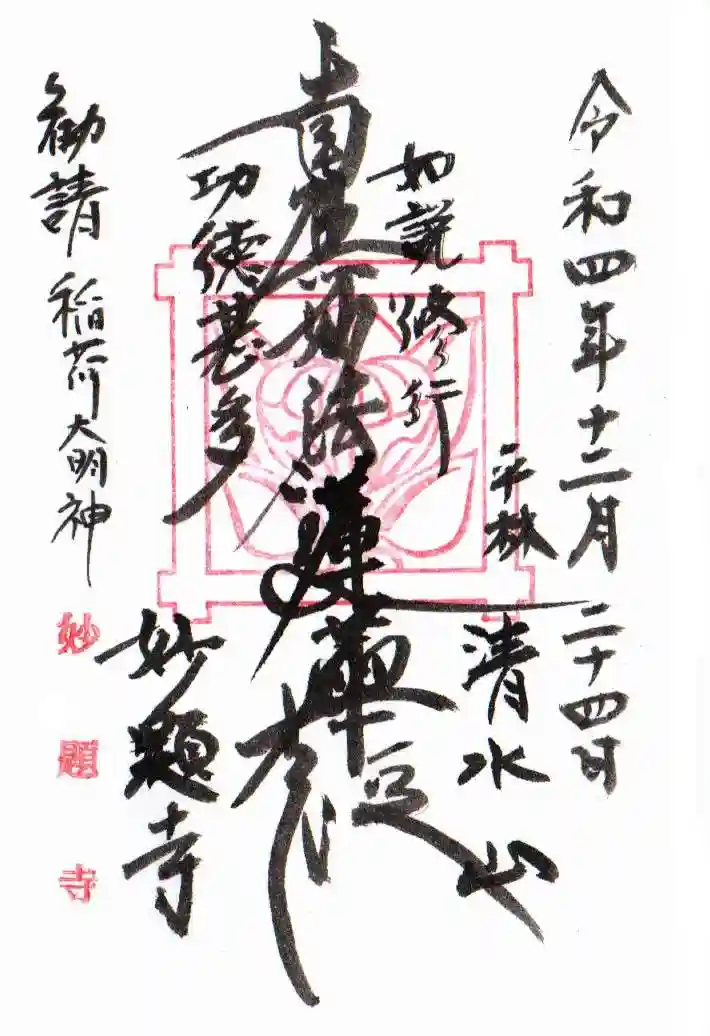 令和四年十二月二十四日
平林
清水山
如説修行
南無妙法蓮華経
功徳甚多
妙題寺
勧請 稲荷大明神
妙題寺